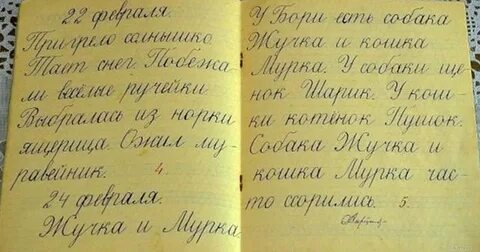 22 февраля.
Пригрело солнышко.
Тает снег. Побежа-
ли весёлые ручейки.
Выбралась из норки
ящерица. Ожил му-
равейник. 4
24 февраля.
Жучка и Мурка.
У Бори есть собака
Жучка и кошка
Мурка. У собаки ще-
нок Шарик. У кош-
ки котёнок Пушок.
Собака Жучка и
кошка Мурка час-
то ссорились. 5.